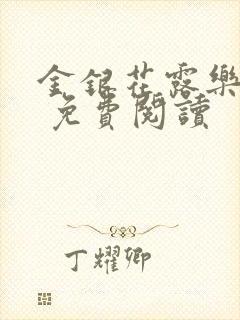 金銀花露樂
免費閱讀
丁耀卿